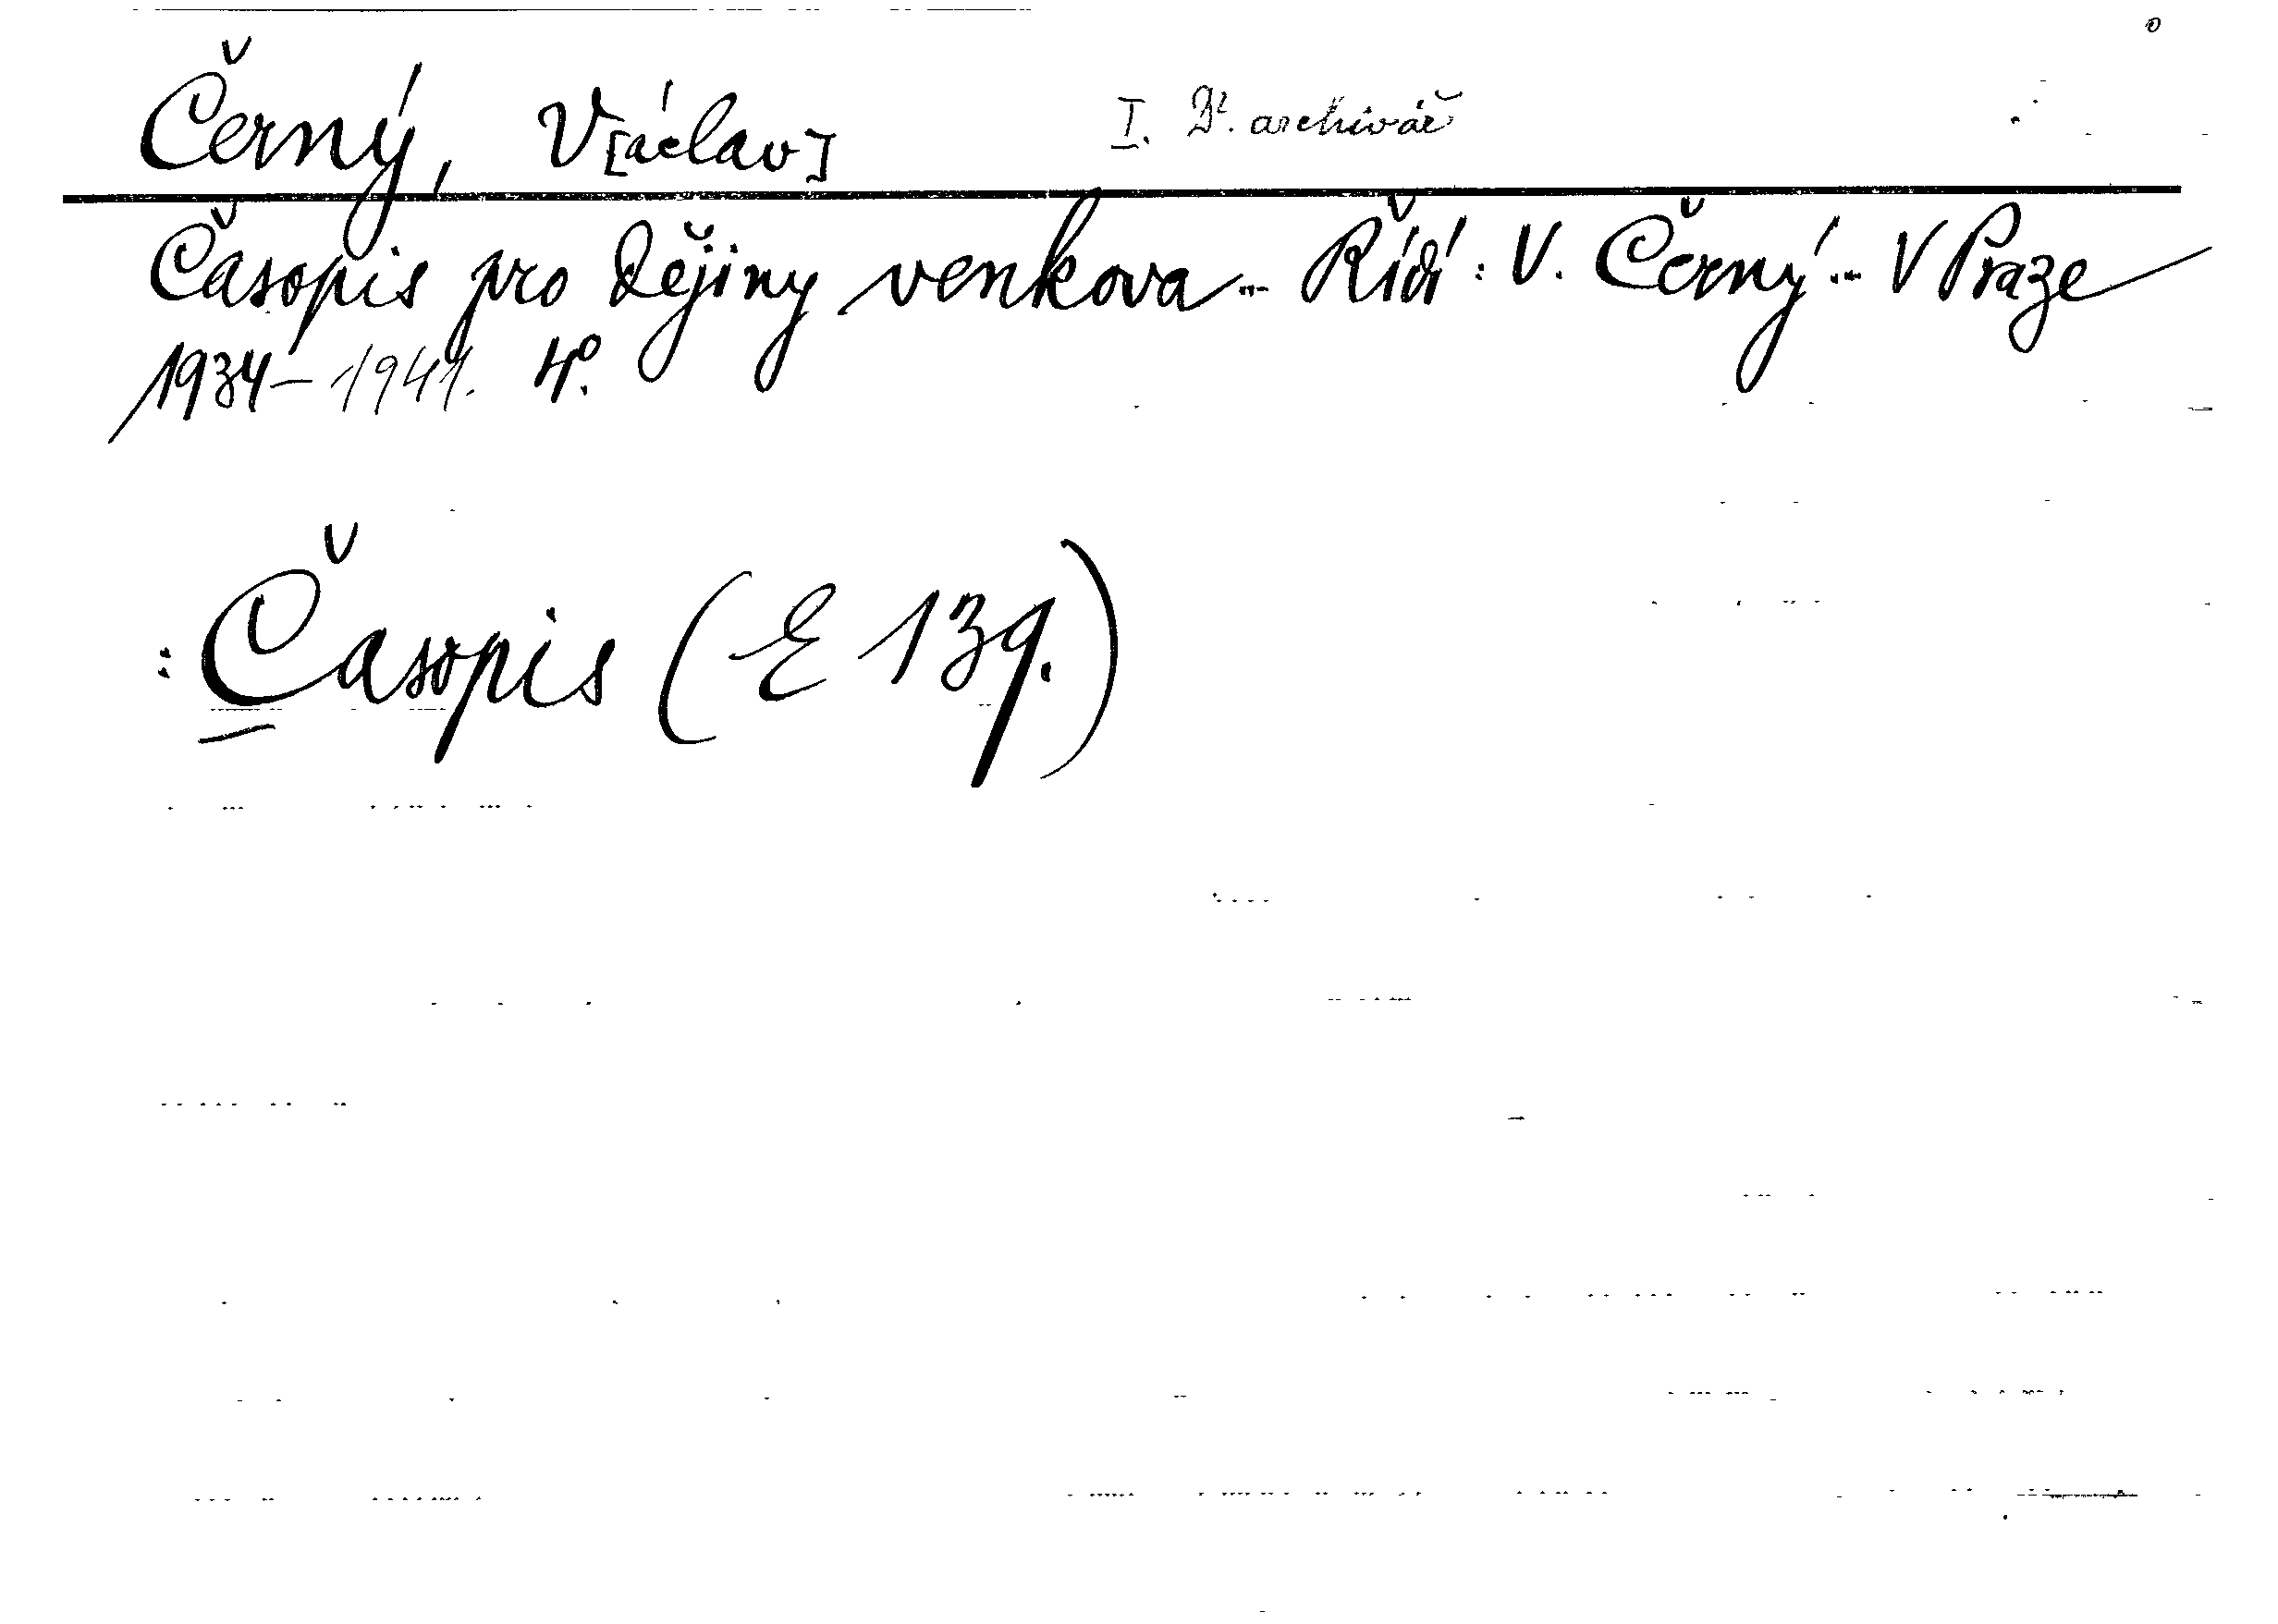 Černý, V[áclav] I. Dr. archivář
Časopis pro dějiny venkova... Řídí: V. Černý... V Praze
1934–1941. 4°.
: Časopis (E 139.)